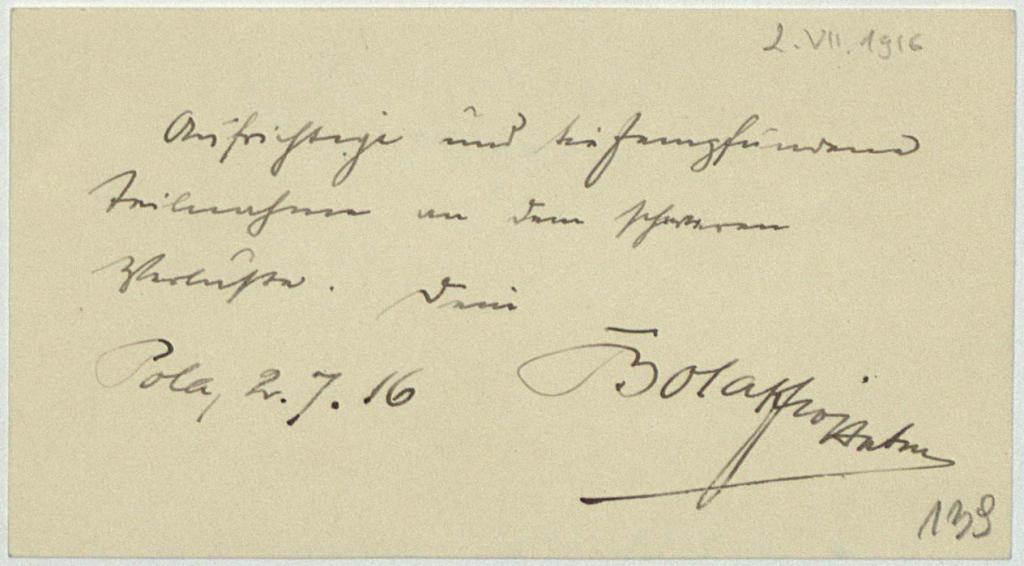 2. VII. 1916
Aufrichtige und tiefempfundene
Teilnahme an dem schweren
Verluste. Dein
Pola, 2. 7. 16
Bolaffio
139